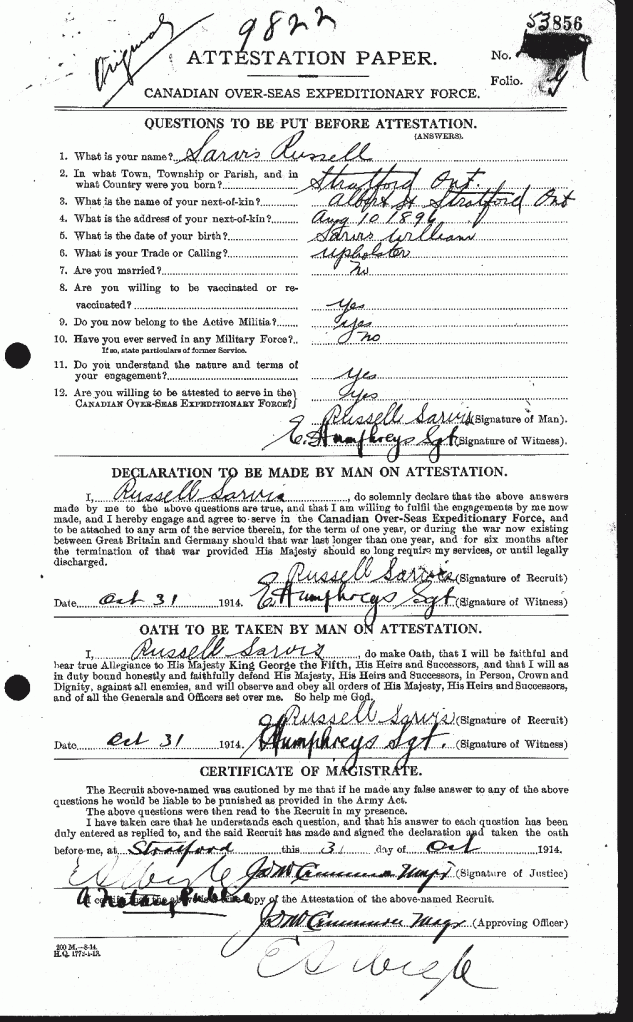 Original
9822
53856
ATTESTATION PAPER.
No.
Folio.
CANADIAN OVER-SEAS EXPEDITIONARY FORCE.
QUESTIONS TO BE PUT BEFORE ATTESTATION.
(ANSWERS).
1. What is your name? Sarvis Russell
2. In what Town, Township or Parish, and in
what Country were you born? Stratford Ont.
3. What is the name of your next-of-kin? Albert St Stratford Ont
4. What is the address of your next-of-kin? Aug 10 1896
5. What is the date of your birth? Sarvis William
6. What is your Trade or Calling? upholster
7. Are you married? no
8. Are you willing to be vaccinated or re-
vaccinated? yes
9. Do you now belong to the Active Militia? yes
10. Have you ever served in any Military Force? no
If so, state particulars of former Service.
11. Do you understand the nature and terms of
your engagement? yes
12. Are you willing to be attested to serve in the
CANADIAN OVER-SEAS EXPEDITIONARY FORCE? yes
Russell Sarvis (Signature of Man).
E. Humphreys Sgt (Signature of Witness).
DECLARATION TO BE MADE BY MAN ON ATTESTATION.
I, Russell Sarvis, do solemnly declare that the above answers
made by me to the above questions are true, and that I am willing to fulfil the engagements by me now
made, and I hereby engage and agree to serve in the Canadian Over-Seas Expeditionary Force, and
to be attached to any arm of the service therein, for the term of one year, or during the war now existing
between Great Britain and Germany should that war last longer than one year, and for six months after
the termination of that war provided His Majesty should so long require my services, or until legally
discharged.
Russell Sarvis (Signature of Recruit)
Date Oct 31 1914. E Humphreys Sgt (Signature of Witness)
OATH TO BE TAKEN BY MAN ON ATTESTATION.
I, Russell Sarvis, do make Oath, that I will be faithful and
bear true Allegiance to His Majesty King George the Fifth, His Heirs and Successors, and that I will as
in duty bound honestly and faithfully defend His Majesty, His Heirs and Successors, in Person, Crown and
Dignity, against all enemies, and will observe and obey all orders of His Majesty, His Heirs and Successors,
and of all the Generals and Officers set over me. So help me God.
Russell Sarvis (Signature of Recruit)
Date Oct 31 1914. E Humphreys Sgt. (Signature of Witness)
CERTIFICATE OF MAGISTRATE.
The Recruit above-named was cautioned by me that if he made any false answer to any of the above
questions he would be liable to be punished as provided in the Army Act.
The above questions were then read to the Recruit in my presence.
I have taken care that he understands each question, and that his answer to each question has been
duly entered as replied to, and the said Recruit has made and signed the declaration and taken the oath
before me, at Stratford this 31 day of Oct 1914.
(Signature of Justice)
A Notary Public
I certify that the above is a true copy of the Attestation of the above-named Recruit.
(Approving Officer)
200 M.—8-14.
H.Q. 1772-1-13.